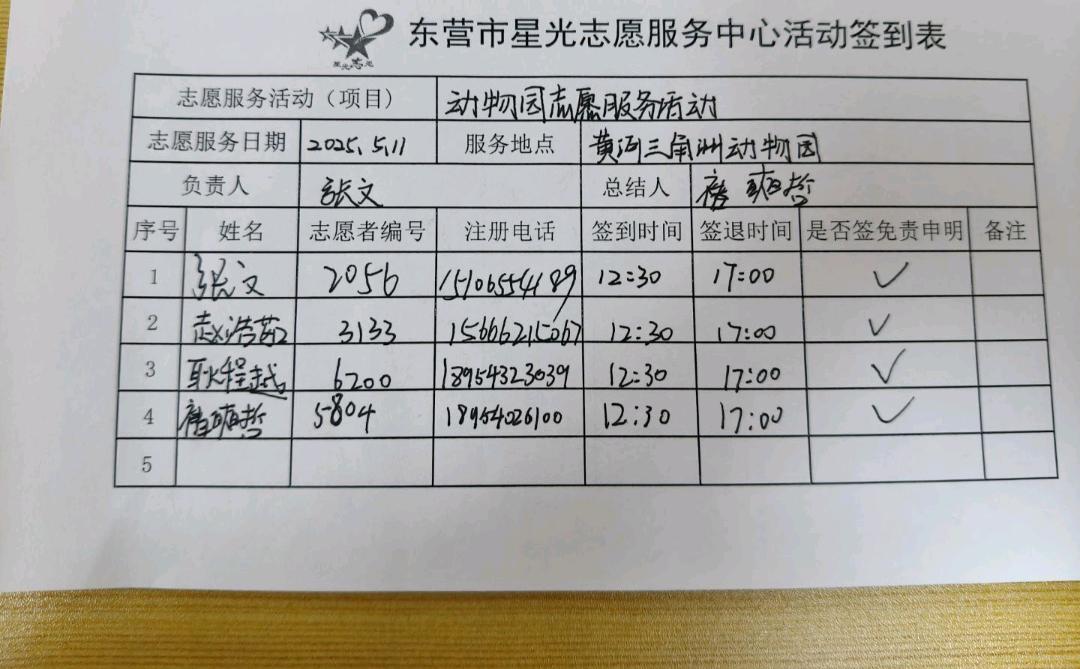 东营市星光志愿服务中心活动签到表
志愿服务活动（项目） 动物园志愿服务活动
志愿服务日期 2025.5.11 服务地点 黄河三角洲动物园
负责人 张文 总结人 唐爽哲
序号 姓名 志愿者编号 注册电话 签到时间 签退时间 是否签免责申明 备注
1 张文 2056 15106554189 12:30 17:00 ✓
2 赵浩 3133 15666215067 12:30 17:00 ✓
3 耿程越 6200 18954323039 12:30 17:00 ✓
4 唐爽哲 5804 18954026100 12:30 17:00 ✓
5